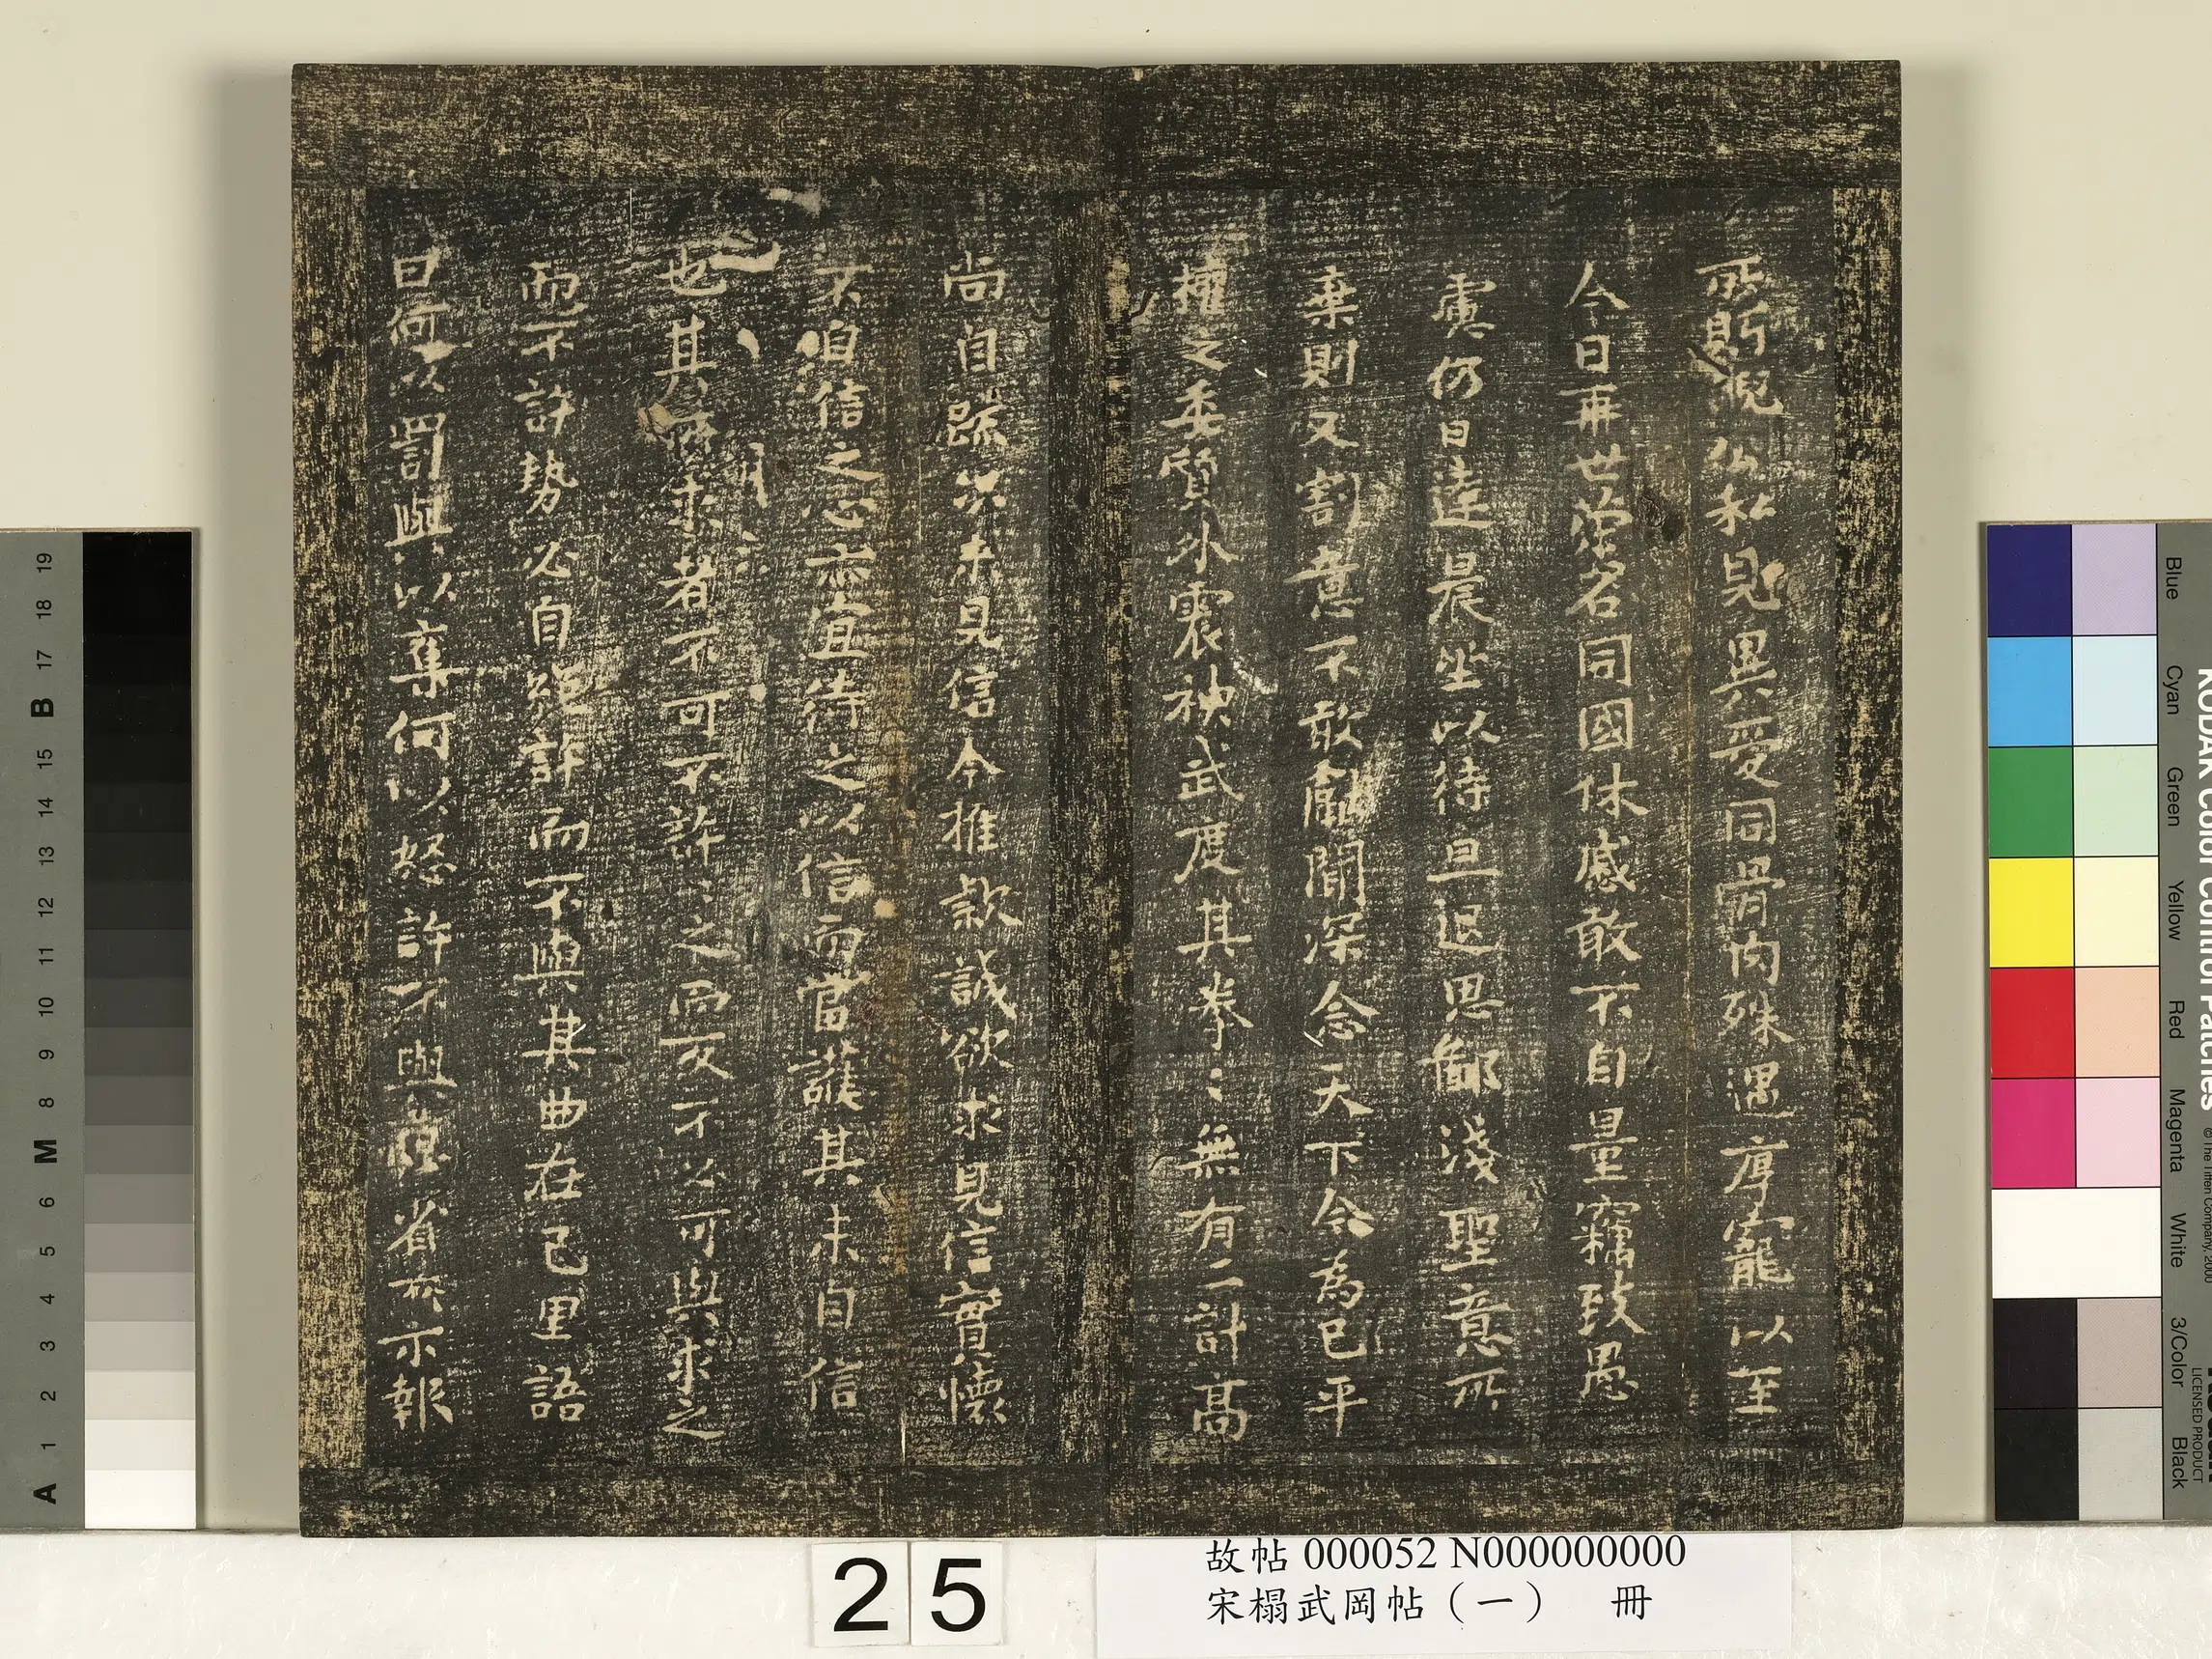 所貺公私見異愛同骨肉殊遇厚寵以至
今日再世榮名同國休慼敢不自量竊致愚
慮仍日達晨坐以待旦退思鄙淺聖意所
棄則又割意不敢獻聞深念天下今為已平
權之委質外震神武度其拳〻無有二計高
尚自疏況未見信今推款誠欲求見信實懷
不自信之心亦宜待之以信而當護其未自信
也其所求者不可不許〻之而反不必可與求之
而不許勢必自絕許而不與其曲在己里語
曰何以罰與以奪何以怒許不與思省所示報
25
故帖 000052 N000000000
宋榻武岡帖（一） 冊
A 1 2 3 4 5 6 M 8 9 10 11 12 13 14 15 B 17 18 19
KODAK Color Control Patches
© The Tiffen Company, 2000
LICENSED PRODUCT
Blue Cyan Green Yellow Red Magenta White 3/Color Black